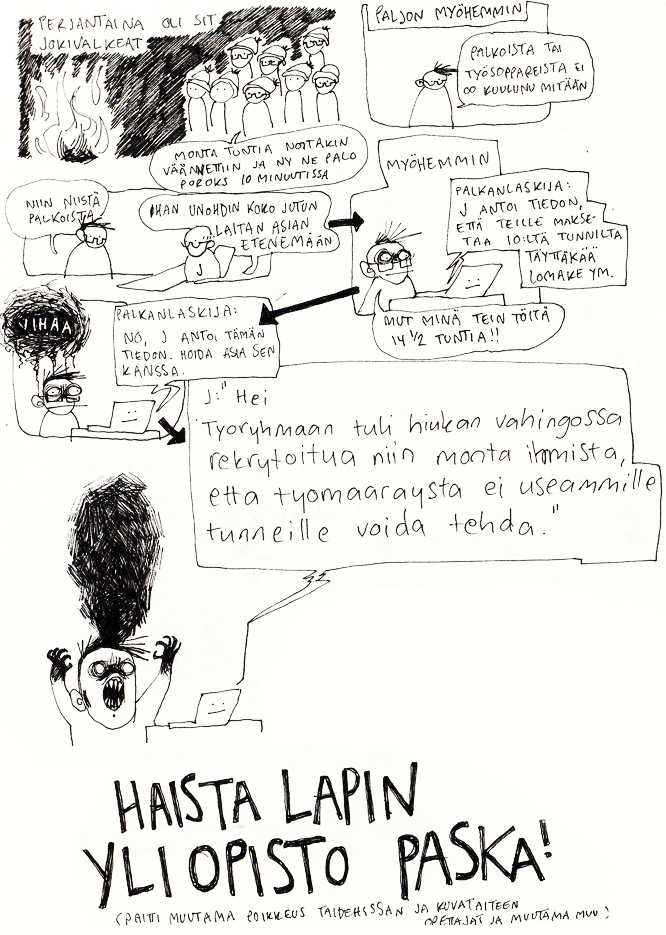 PERJANTAINA OLI SIT
JOKIVALKEAT
MONTA TUNTIA NOITAKIN
VÄÄNNETTIIN JA NY NE PALO
POROKS 10 MINUUTISSA
PALJON MYÖHEMMIN
PALKOISTA TAI
TYÖSOPPAREISTA EI
OO KUULUNU MITÄÄN
NIIN NIISTÄ
PALKOISTA
IHAN UNOHDIN KOKO JUTUN
...LAITAN ASIAN
ETENEMÄÄN
J
MYÖHEMMIN
PALKANLASKIJA:
J ANTOI TIEDON,
ETTÄ TEILLE MAKSE-
TAA 10:LTÄ TUNNILTA
TÄYTTÄKÄÄ
LOMAKE YM.
MUT MINÄ TEIN TÖITÄ
14 ½ TUNTIA!!
VIHAA
PALKANLASKIJA:
NO, J ANTOI TÄMÄN
TIEDON. HOIDA ASIA SEN
KANSSA.
J:" Hei
Tyoryhmaan tuli hiukan vahingossa
rekrytoitua niin monta ihmista,
etta tyomaaraysta ei useammille
tunneille voida tehda."
HAISTA LAPIN
YLIOPISTO PASKA!
(PAITTI MUUTAMA POIKKEUS TAIDEHSSSAN JA KUVATAITEEN
OPETTAJAT JA MUUTAMA MUU)